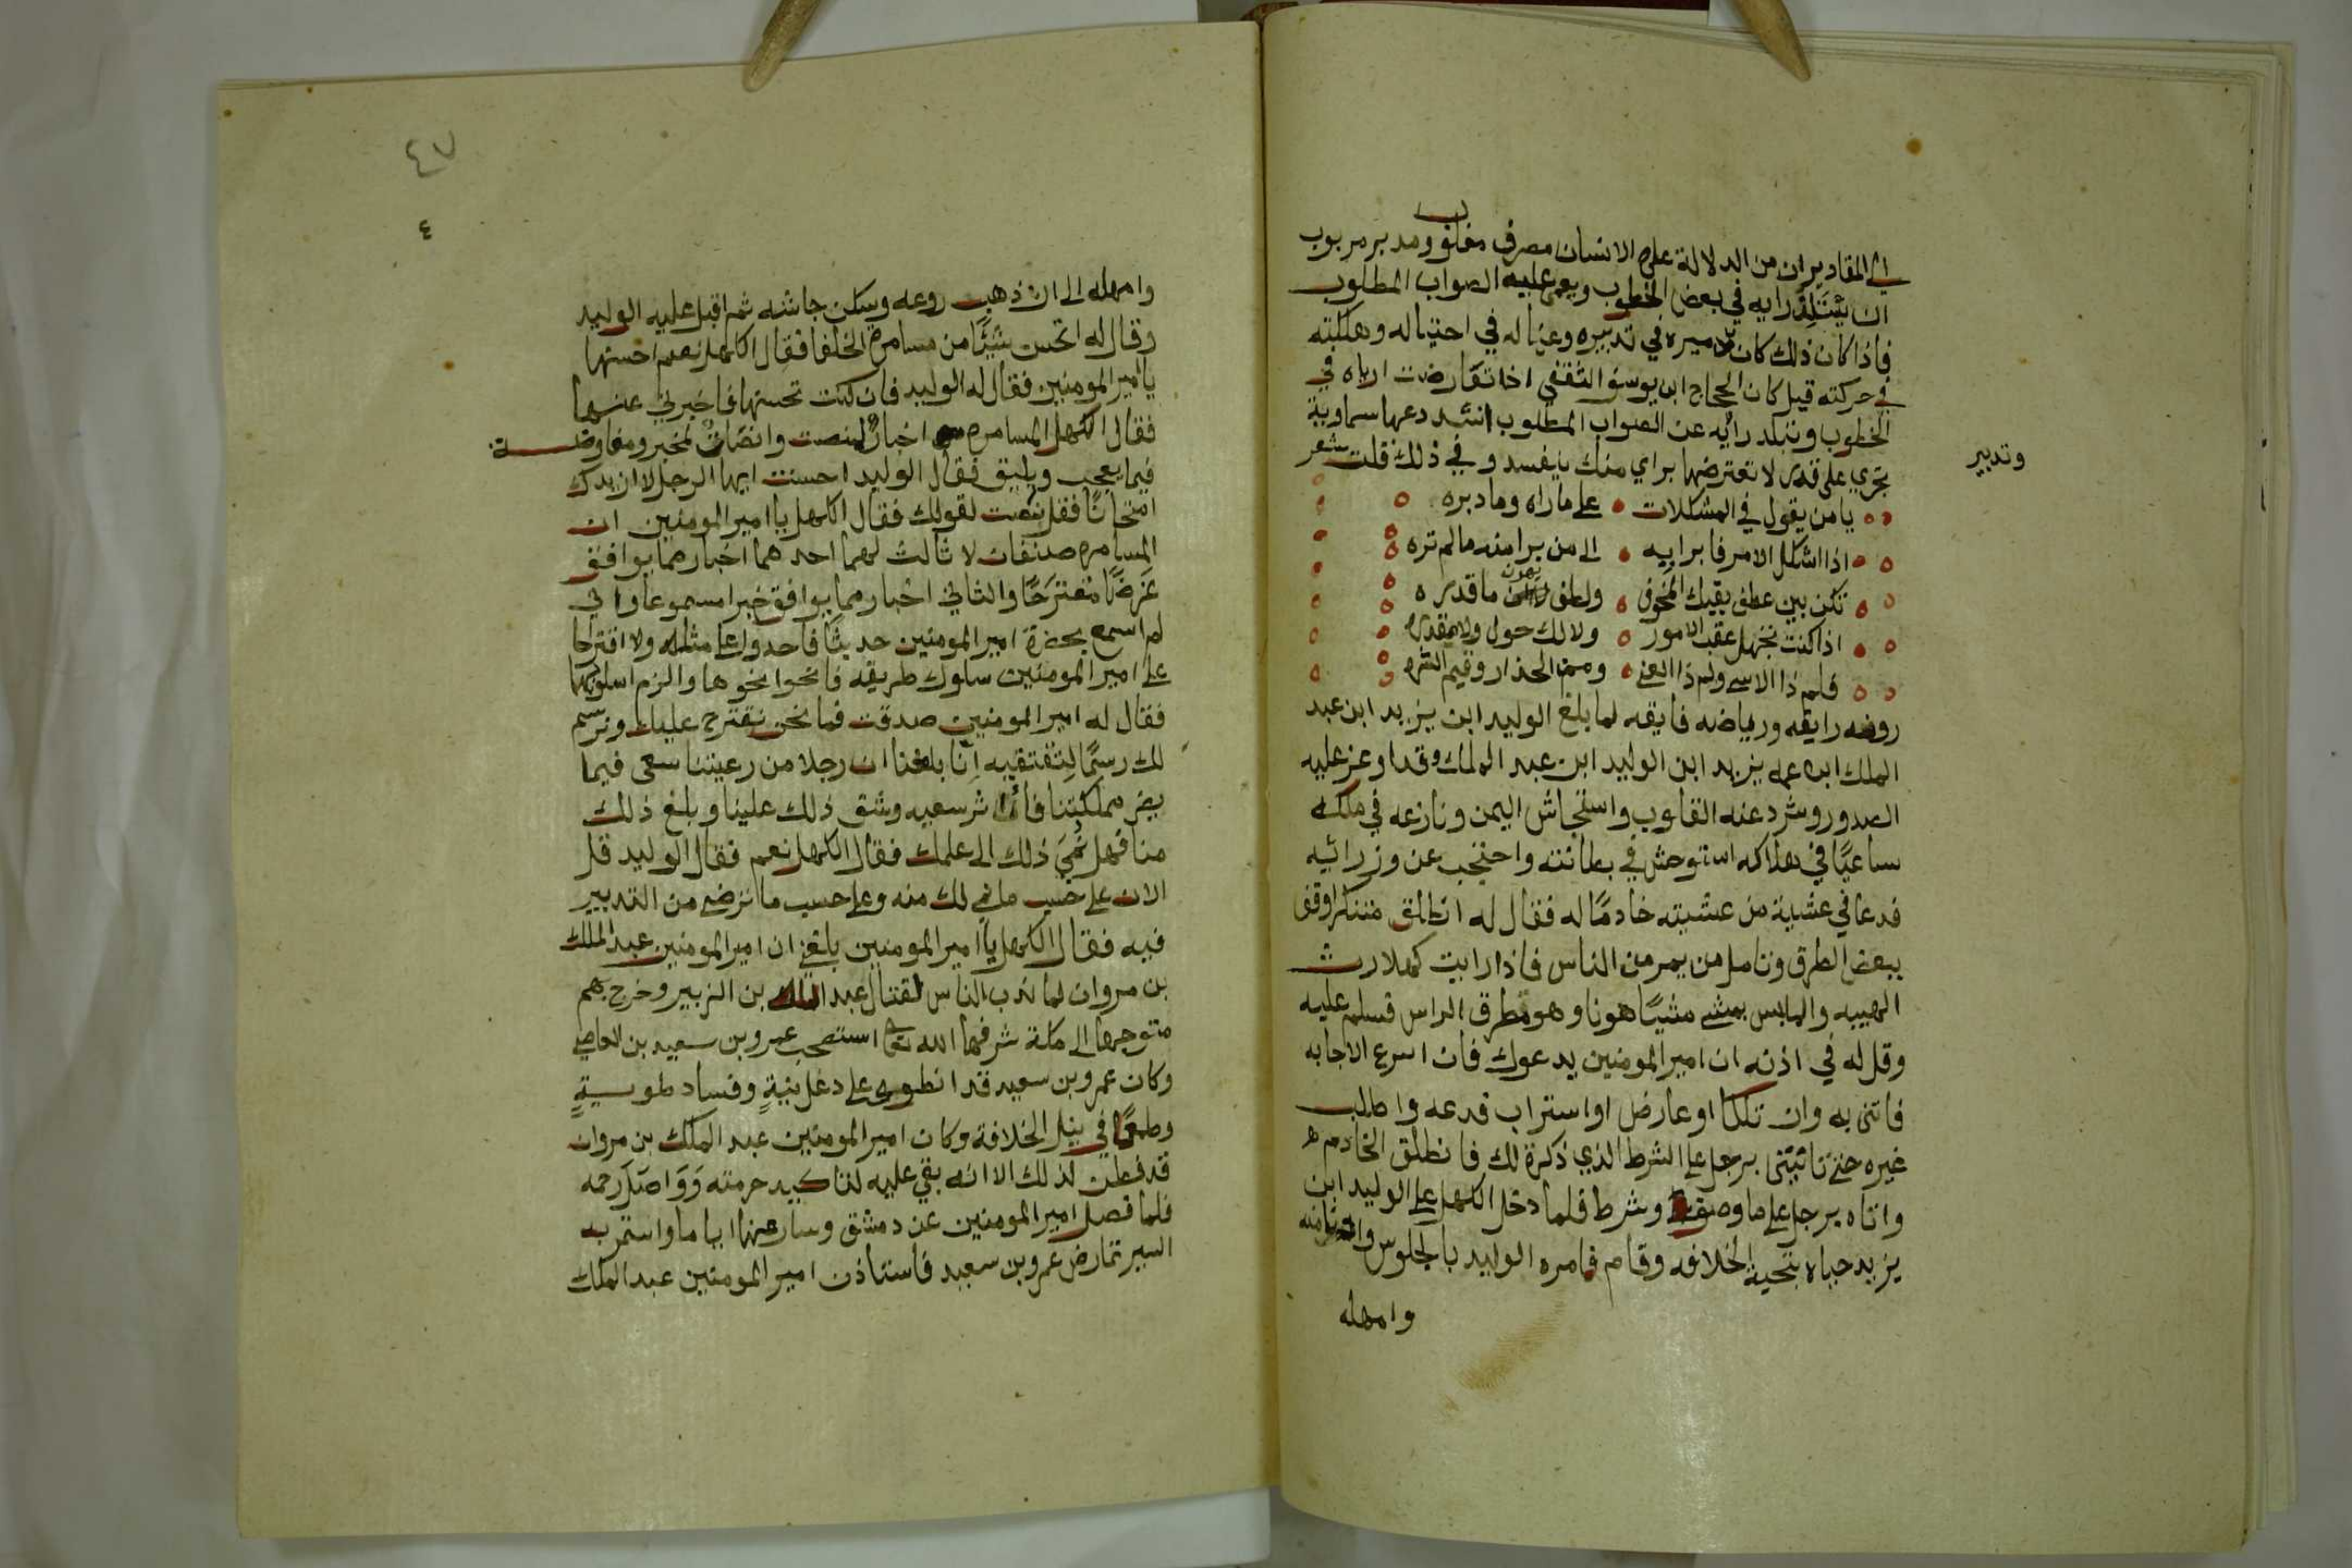 الى المقادير ان من الدلالة على الانسان مصرف مغلوب ومدبر مربوب
ان يتبلد رايه في بعض الخطوب ويعمى عليه الصواب المطلوب
فاذا كان ذلك كان تدميره في تدبيره وعياله في احتياله وهلكته
في حركته قيل كان الحجاج ابن يوسف الثقفي اذا تعارضت اراه في
الخطوب وتبلد رأيه عن الصواب المطلوب انشد دعها سماوية
تجري على قدر لا تعترضها براي منك يفسد وفي ذلك قلت شعر
وتدبير
يا من يقول في المشكلات على ما راه وما دبره
اذا اشكل الامر فابرا به الى من يرا منه ما لم تره
تكن بين عطف يقيك المخوف ولطف يهون ما قدره
اذا كنت تجهل عقب الامور ولا لك حول ولا مقدره
فلم ذا الاسى ولم ذا العنى ومم الحذار وفيم الشره
روضه رايقه ورياضه فايقه لما بلغ الوليد ابن يزيد ابن عبد
الملك ابن عمه يزيد ابن الوليد ابن عبد الملك وقد اوغر عليه
الصدور وشرد عنه القلوب واستجاش اليمن ونازعه في ملكه
ساعيًا في هلاكه استوحش في بطانته واحتجب عن وزرائيه
فدعا في عشية من عشيته خادمًا له فقال له انطلق متنكرا وقف
ببعض الطرق وتامل من يمر من الناس فاذا رايت كهلا رث
الهيبه والملبس يمشي مشيًا هونا وهو مطرق الراس فسلم عليه
وقل له في اذنه ان امير المومنين يدعوك فان اسرع الاجابه
فاتنى به وان تلكا او عارض او استراب فدعه واطلب
غيره حتى تاتيني برجل على الشرط الذي ذكرة لك فانطلق الخادم
واتاه برجل على ما وصف وشرط فلما دخل الكهل على الوليد ابن
يزيد حياه بتحية الخلافه وقام فامره الوليد بالجلوس والدنو منه
وامهله
٤٧
٤
وامهله الى ان ذهب روعه وسكن جاشه ثم اقبل عليه الوليد
وقال له اتحسن شيئًا من مسامرة الخلفا فقال الكهل نعم احسنها
يا امير المومنين فقال له الوليد فان كنت تحسنها فاخبرني عنها
فقال الكهل المسامرة اخبار لمنصت وانصات لمخبر ومفاوضة
فيما يعجب ويليق فقال الوليد احسنت ايها الرجل لا ازيدك
امتحانًا فقل ننصت لقولك فقال الكهل يا امير المومنين ان
المسامره صنفان لا ثالث لهما احدهما اخبار مما يوافق
غرضًا مقترحًا والثاني اخبار مما يوافق خبرا مسموعا واني
لم اسمع بحضرة امير المومنين حديثًا فاحذو على مثله ولا اقترحا
على امير المومنين سلوك طريقه فانحوا نحوها والزم اسلوبها
فقال له امير المومنين صدقت فها نحن نقترح عليك ونرسم
لك رسمًا لتقتفيه انا بلغنا ان رجلا من رعيتنا سعى فيما
يضر مملكتنا فاثر سعيه وشق ذلك علينا وبلغ ذلك
منا فهل نمي ذلك الى علمك فقال الكهل نعم فقال الوليد قل
الان على حسب ما نمي لك منه وعلى حسب ما ترضى من التدبير
فيه فقال الكهل يا امير المومنين بلغني ان امير المومنين عبد الملك
بن مروان لما ندب الناس لقتال عبد الله بن الزبير وخرج بهم
متوجها الى مكة شرفها الله تعالى استصحب عمرو بن سعيد بن العاصي
وكان عمرو بن سعيد قد انطوى على دغل نيةٍ وفساد طويةٍ
وطمعًا في نيل الخلافة وكان امير المومنين عبد الملك بن مروان
قد فطن لذلك الا انه بقي عليه لتاكيد حرمته وواصل رحمه
فلما فصل امير المومنين عن دمشق وسار عنها اياما واستمر به
السير تمارض عمرو بن سعيد فاستاذن امير المومنين عبد الملك